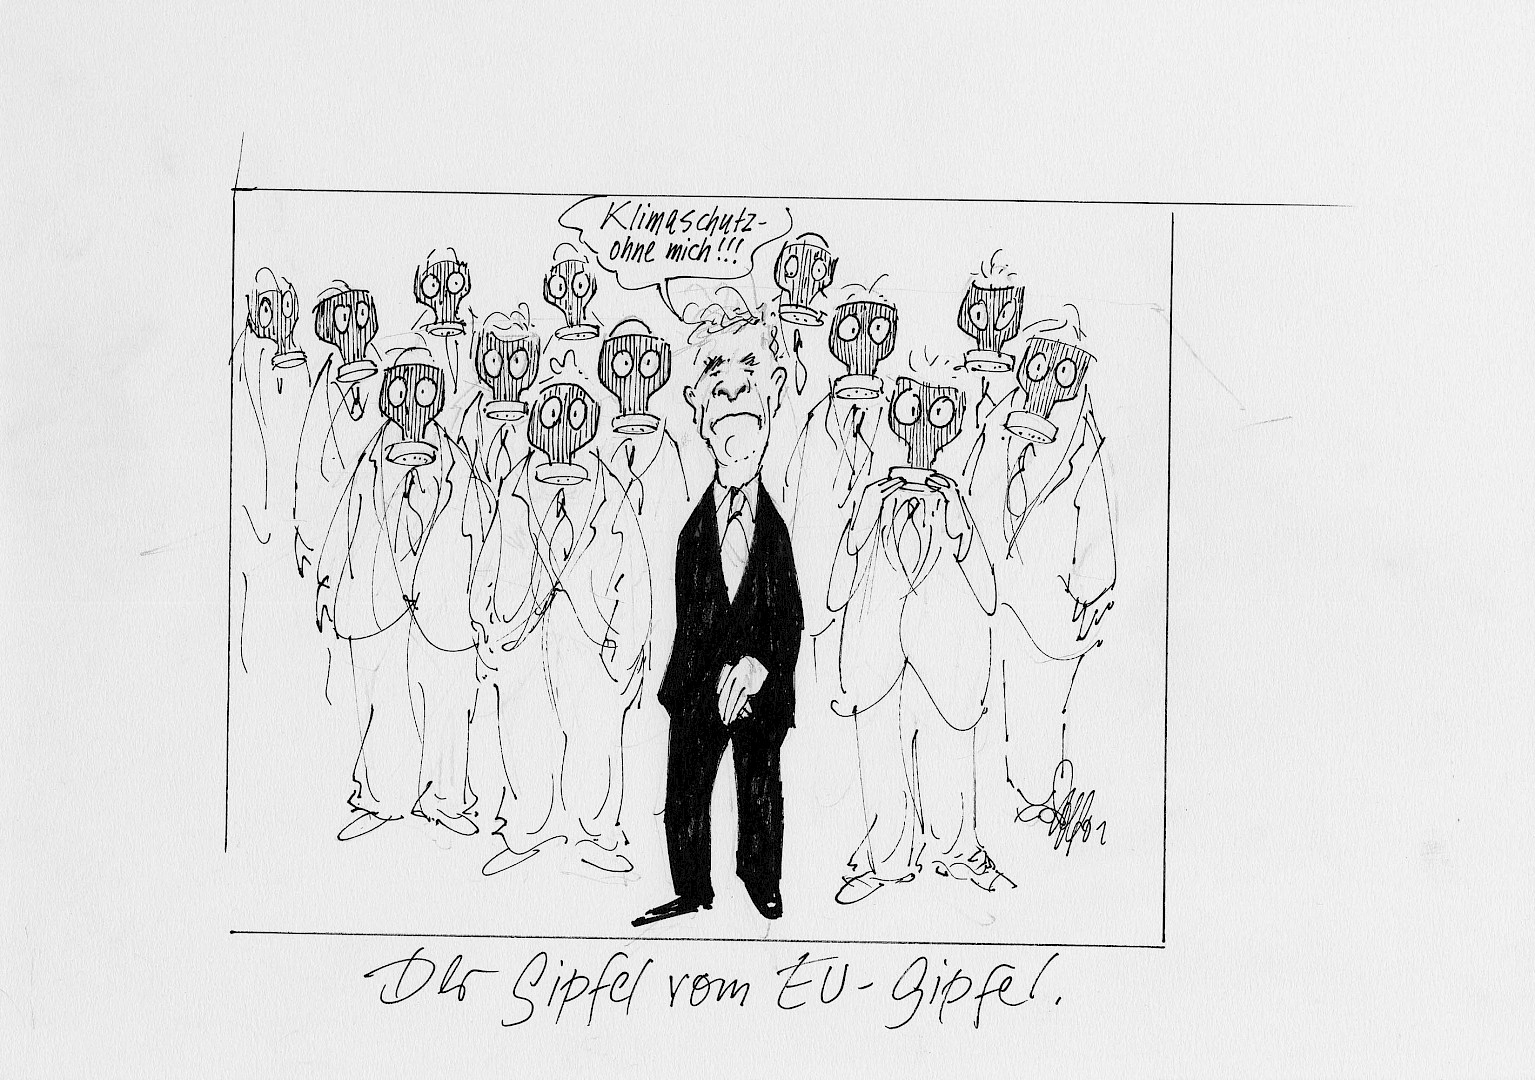 Klimaschutz-
ohne mich!!!
Der Gipfel vom EU-Gipfel.